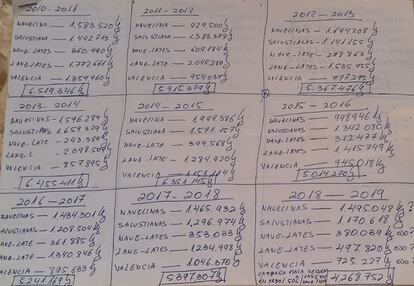 2010-2011
NAVELINA — 1.583.520 kg
SALUSTIANA — 1.442.715
NAVE-LATES — 360.480
LANE-LATES — 1.772.661
VALENCIA — 1.359.960
6.519.346 kg
2011-2012
NAVELINA — 929.500
SALUSTIANA — 1.383.378
NAVE-LATES — 604.184
LANE-LATES — 2.044.280
VALENCIA — 954.037
5.915.379 kg
2012-2013
NAVELINAS — 1.694.208
SALUSTIANAS — 1.141.155
LANE-LATES — 1.535.955
VALENCIA — 717.275
5.367.476 kg
2013-2014
NAVELINAS — 1.596.289
SALUSTIANAS — 1.659.329
NAVE-LATE — 243.389
LANE-L — 2.098.509
VALENCIA — 857.895
6.455.411 kg
2014-2015
NAVELINA — 1.944.386
SALUSTIANA — 1.571.107
NAVE-LATE — 399.568
LANE-LATE — 1.284.920
VALENCIA —
6.351.145
2015-2016
NAVELINAS — 998.946 kg
SALUSTIANAS — 1.342.080 kg
NAVE-LATES — 312.477 kg
LANE-LATES — 1.415.749 kg
VALENCIA — 945.018 kg
5.014.270 kg
2016-2017
NAVELINAS — 1.434.301 kg
SALUSTIANAS — 1.208.504 kg
NAVE-LATE — 361.885 kg
LANE-LATE — 1.340.846 kg
VALENCIA — 895.633 kg
5.241.169 kg
2017-2018
NAVELINAS — 1.465.932 kg
SALUSTIANAS — 1.296.974 kg
NAVE-LATES — 353.033 kg
LANE-LATES — 1.234.998 kg
VALENCIA — 1.046.370 kg
5.397.307 kg
2018-2019
NAVELINAS — 1.495.048 kg
SALUSTIANAS — 1.170.618 kg
NAVE-LATES — 380.039 kg
LANE-LATES — 497.820 kg
VALENCIA — 725.227 kg
CAMPAÑA MALA
4.268.752 kg